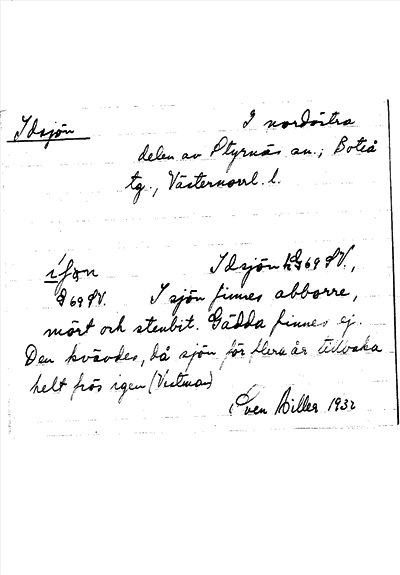 Idsjön
I nordöstra
delen av Styrnäs sn.; Boteå
tg., Västernorrl. l.
Idsjön G69SV.,
G69SV. I sjön finnes abborre,
mört och stenbit. Gädda finnes ej.
Den kvävdes, då sjön för flera år tillbaka
helt frös igen (Vestman)
Sven Hiller 1932